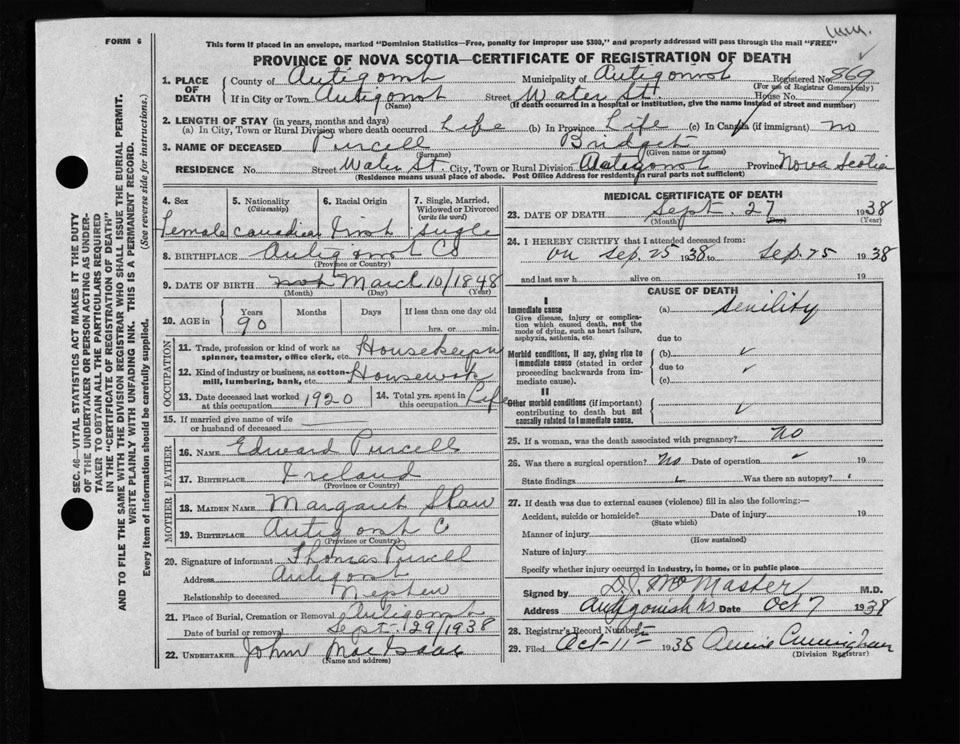 FORM 6
This form if placed in an envelope, marked "Dominion Statistics—Free, penalty for improper use $300," and properly addressed will pass through the mail "FREE"
PROVINCE OF NOVA SCOTIA—CERTIFICATE OF REGISTRATION OF DEATH
1. PLACE OF DEATH County of Antigonish Municipality of Antigonish Registered No. 869
(For use of Registrar General only)
If in City or Town Antigonish Street Water St. House No.
(Name) (If death occurred in a hospital or institution, give the name instead of street and number)
2. LENGTH OF STAY (in years, months and days)
(a) In City, Town or Rural Division where death occurred Life (b) In Province Life (c) In Canada (if immigrant) no
3. NAME OF DECEASED Purcell Bridget
(Surname) (Given name or names)
RESIDENCE No. Street Water St. City, Town or Rural Division Antigonish Province Nova Scotia
(Residence means usual place of abode. Post Office Address for residents in rural parts not sufficient)
4. Sex 5. Nationality (Citizenship) 6. Racial Origin 7. Single, Married, Widowed or Divorced (write the word)
Female Canadian Irish Single
8. BIRTHPLACE Antigonish Co
(Province or Country)
9. DATE OF BIRTH March 10/1848
(Month) (Day) (Year)
10. AGE in Years Months Days If less than one day
90 hrs. or min.
OCCUPATION
11. Trade, profession or kind of work as spinner, teamster, office clerk, etc. Housekeeper
12. Kind of industry or business, as cotton-mill, lumbering, bank, etc. Housework
13. Date deceased last worked at this occupation 1920 14. Total yrs. spent in this occupation Life
15. If married give name of wife or husband of deceased
FATHER
16. NAME Edward Purcell
17. BIRTHPLACE Ireland
(Province or Country)
MOTHER
18. MAIDEN NAME Margaret Shaw
19. BIRTHPLACE Antigonish Co
(Province or Country)
20. Signature of informant Thomas Purcell
Address Antigonish
Relationship to deceased Nephew
21. Place of Burial, Cremation or Removal Antigonish
Date of burial or removal Sept. 29/1938
22. UNDERTAKER John MacIsaac
(Name and address)
MEDICAL CERTIFICATE OF DEATH
23. DATE OF DEATH Sept. 27 1938
(Month) (Day) (Year)
24. I HEREBY CERTIFY that I attended deceased from:
on Sep. 25 1938 to Sep. 25 1938
and last saw h alive on 19
CAUSE OF DEATH
I
Immediate cause (a) Senility
Give disease, injury or complication which caused death, not the mode of dying, such as heart failure, asphyxia, asthenia, etc. due to
Morbid conditions, if any, giving rise to immediate cause (stated in order proceeding backwards from immediate cause). (b)
due to
(c)
II
Other morbid conditions (if important) contributing to death but not causally related to immediate cause.
25. If a woman, was the death associated with pregnancy? No
26. Was there a surgical operation? No Date of operation 19
State findings Was there an autopsy?
27. If death was due to external causes (violence) fill in also the following:—
Accident, suicide or homicide? Date of injury 19
(State which)
Manner of injury
(How sustained)
Nature of injury
Specify whether injury occurred in industry, in home, or in public place
Signed by D.J. McMaster M.D.
Address Antigonish N.S. Date Oct 7 1938
28. Registrar's Record Number
29. Filed Oct 11th 1938 Annie Cunningham
(Division Registrar)
SEC. 46—VITAL STATISTICS ACT MAKES IT THE DUTY
OF THE UNDERTAKER OR PERSON ACTING AS UNDER-
TAKER TO OBTAIN ALL THE PARTICULARS REQUIRED
IN THE "CERTIFICATE OF REGISTRATION OF DEATH"
AND TO FILE THE SAME WITH THE DIVISION REGISTRAR WHO SHALL ISSUE THE BURIAL PERMIT.
WRITE PLAINLY WITH UNFADING INK. THIS IS A PERMANENT RECORD.
Every item of information should be carefully supplied. (See reverse side for instructions.)